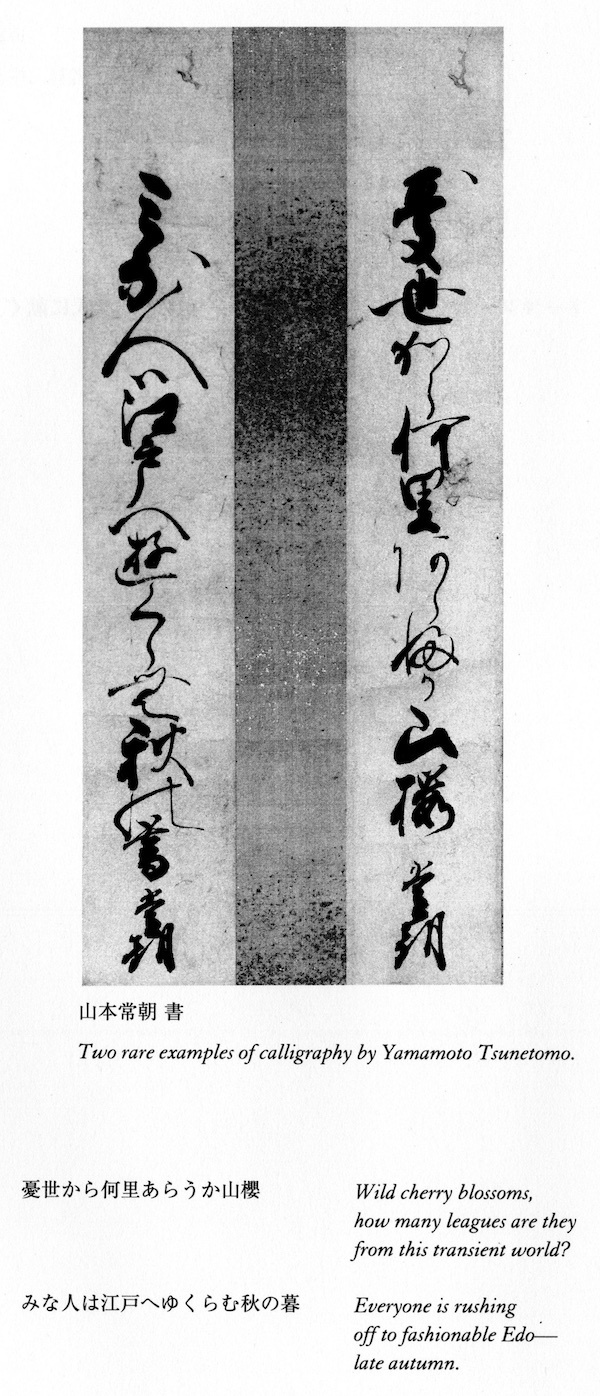 憂世から何里あらふか山櫻 常朝
みな人ハ江戸へ遊くらむ秋の暮 常朝
山本常朝 書
Two rare examples of calligraphy by Yamamoto Tsunetomo.
憂世から何里あらうか山櫻
Wild cherry blossoms,
how many leagues are they
from this transient world?
みな人は江戸へゆくらむ秋の暮
Everyone is rushing
off to fashionable Edo—
late autumn.